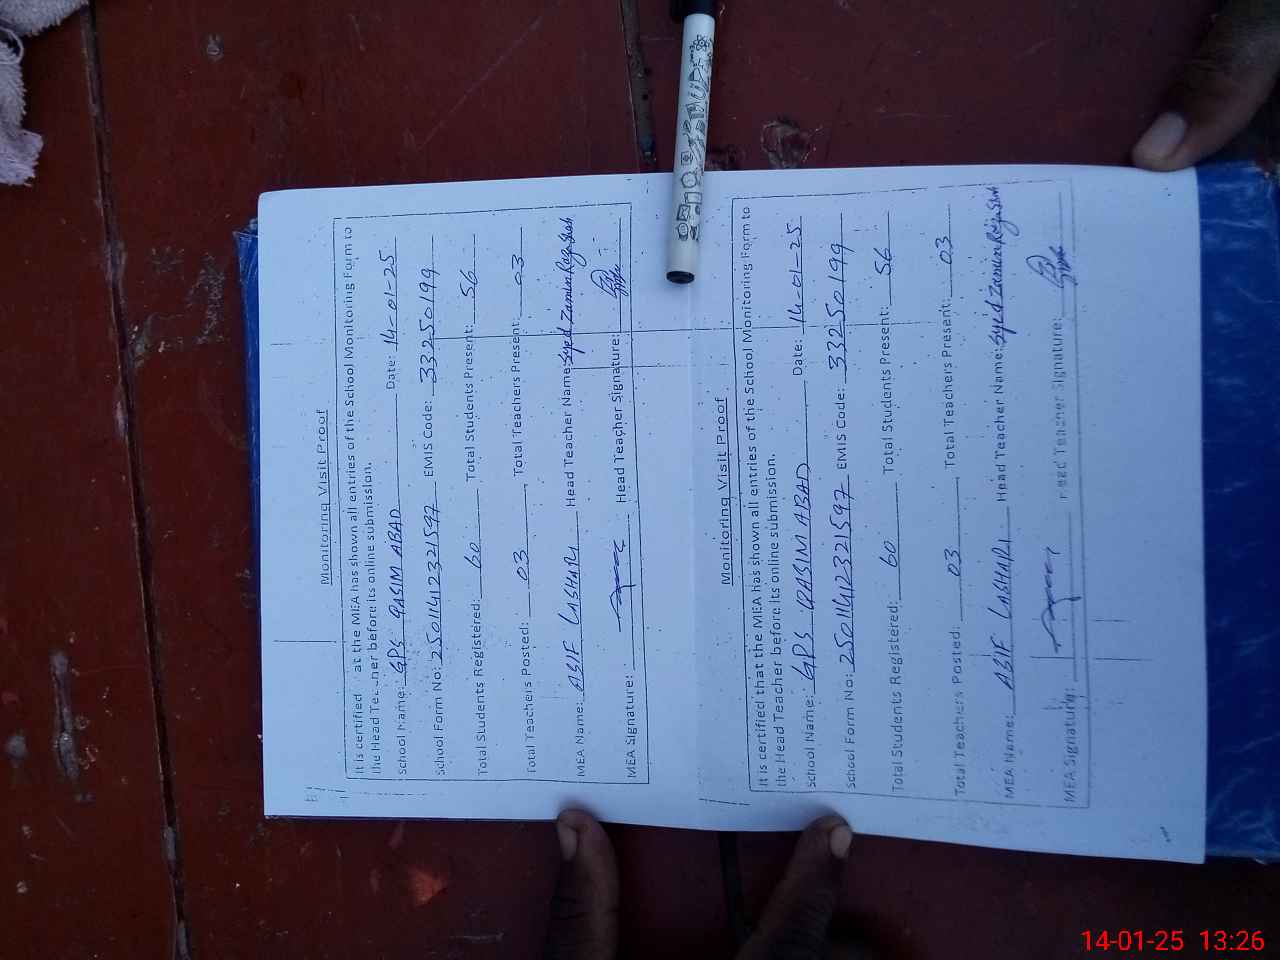 Monitoring Visit Proof
It is certified at the MEA has shown all entries of the School Monitoring Form to
the Head Teacher before its online submission.
School Name: GPS QASIM ABAD Date: 14-01-25
School Form No: 2501141232159 EMIS Code: 33250199
Total Students Registered: 60 Total Students Present: 56
Total Teachers Posted: 03 Total Teachers Present: 03
MEA Name: ASIF LASHARI Head Teacher Name: Syed Zamin Raza Shah
MEA Signature: Head Teacher Signature:
Monitoring Visit Proof
It is certified that the MEA has shown all entries of the School Monitoring Form to
the Head Teacher before its online submission.
School Name: GPS QASIM ABAD Date: 14-01-25
School Form No: 25011412321597 EMIS Code: 33250199
Total Students Registered: 60 Total Students Present: 56
Total Teachers Posted: 03 Total Teachers Present: 03
MEA Name: ASIF LASHARI Head Teacher Name: Syed Zamin Raza Shah
MEA Signature: Head Teacher Signature:
14-01-25 13:26